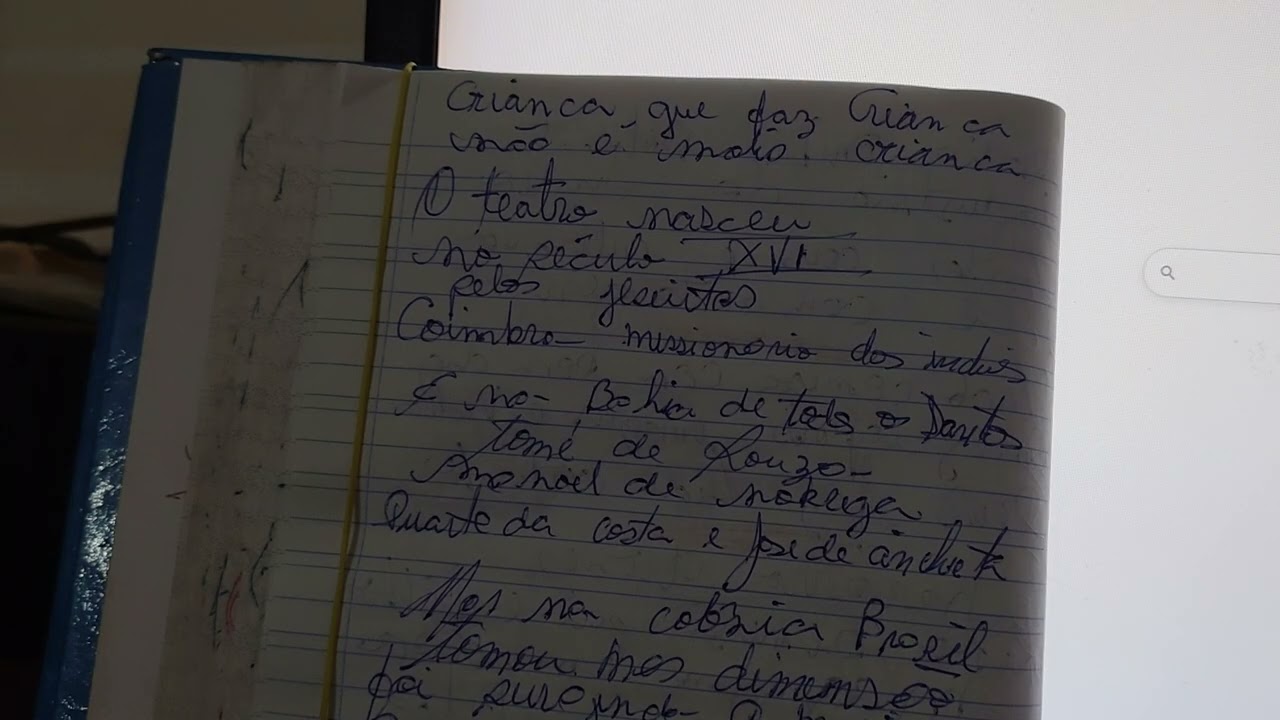 Criança que faz Criança
não é mais criança
O teatro nasceu
no século XVI
pelos jesuítas
Coimbra missionario dos indios
E na Bahia de todos os Santos
tomé de Souza
manoel de nobrega
Duarte da costa e José de anchieta
Mas na colonia Brasil
tomou mas dimensão
foi